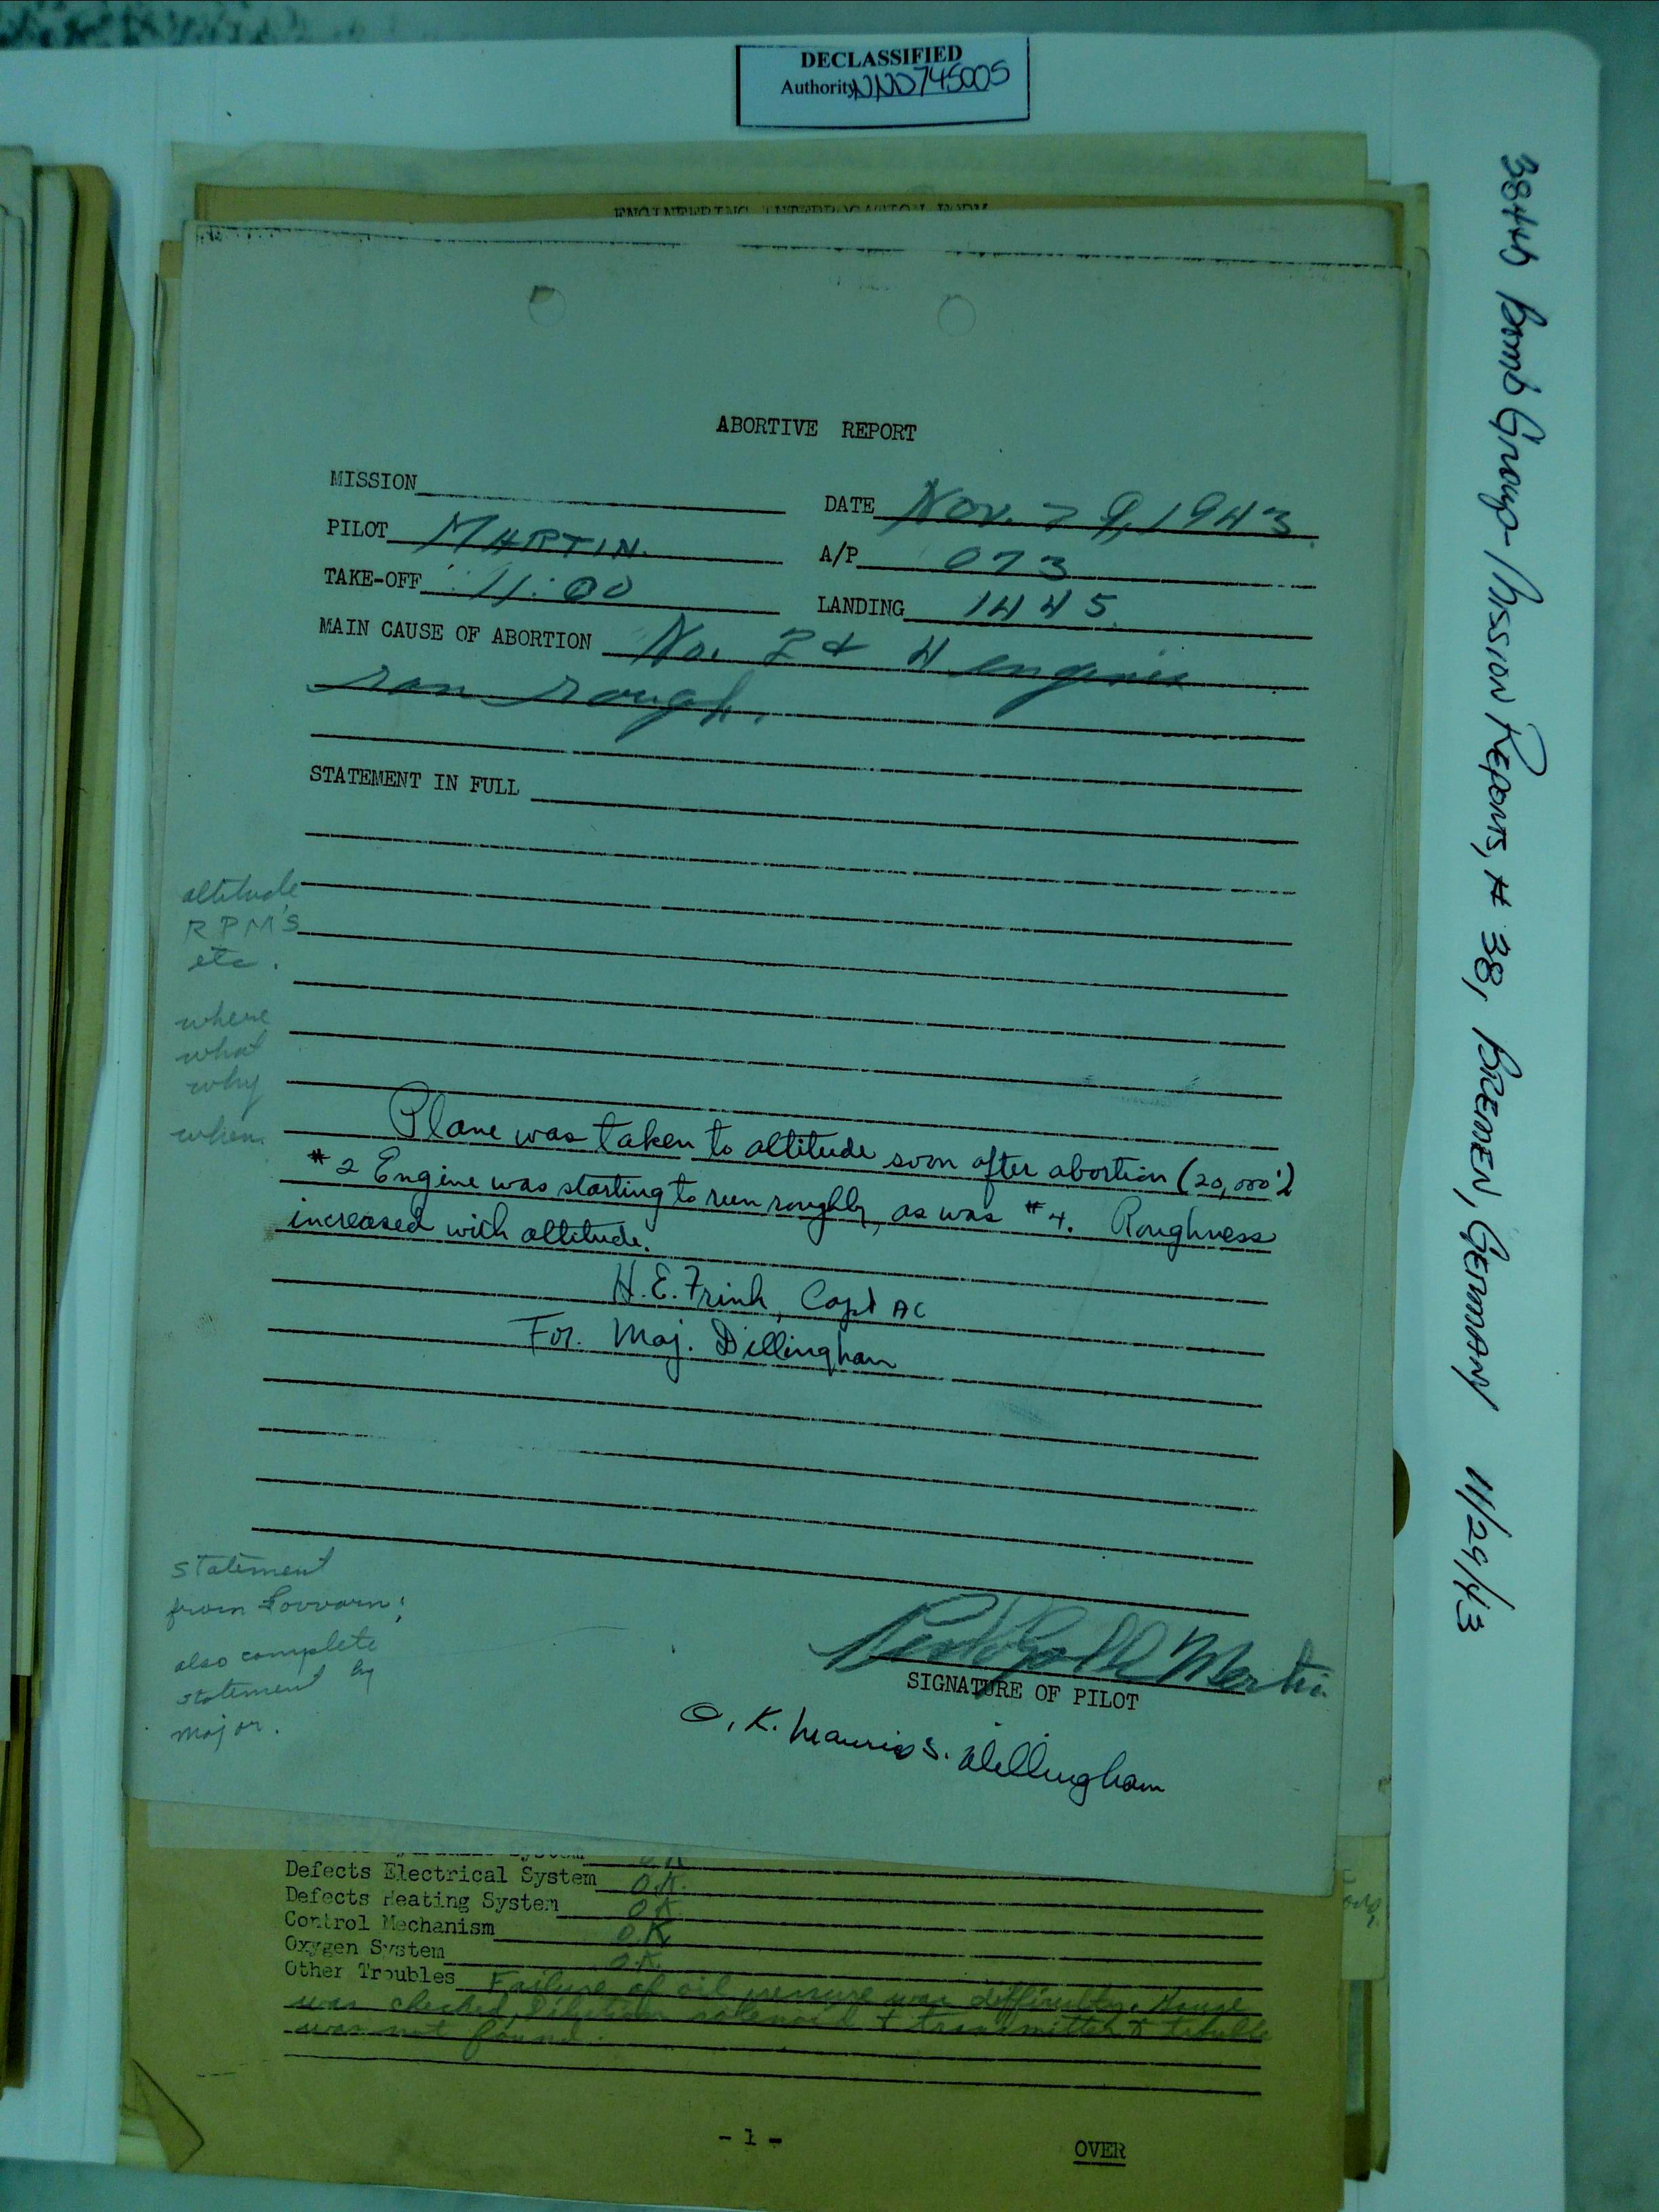 DECLASSIFIED
Authority NND745005
384th Bomb Group - Mission Reports, # 38, BREMEN, GERMANY 11/29/43
ENGINEERING INTERROGATION FORM
ABORTIVE REPORT
MISSION
DATE Nov. 29, 1943
PILOT MARTIN.
A/P 073
TAKE-OFF 11:00
LANDING 1445.
MAIN CAUSE OF ABORTION No. 2 & 4 engines
ran rough.
STATEMENT IN FULL
altitude
RPM's
etc.
where
what
why
when.
Plane was taken to altitude soon after abortion (20,000')
#2 Engine was starting to run roughly, as was #4. Roughness
increased with altitude.
H.E. Frink, Capt AC
For. Maj. Dillingham
statement
from Lovvorn;
also complete
statement by
major.
Martin
SIGNATURE OF PILOT
O.K. Maurice S. Dillingham
System O.K
Defects Electrical System O.K.
Defects Heating System O.K
Control Mechanism O.K
Oxygen System O.K.
Other Troubles Failure of oil pressure was difficulty. Gauge
was checked, Dilution solenoid & transmitter & trouble
was not found.
- 1 -
OVER